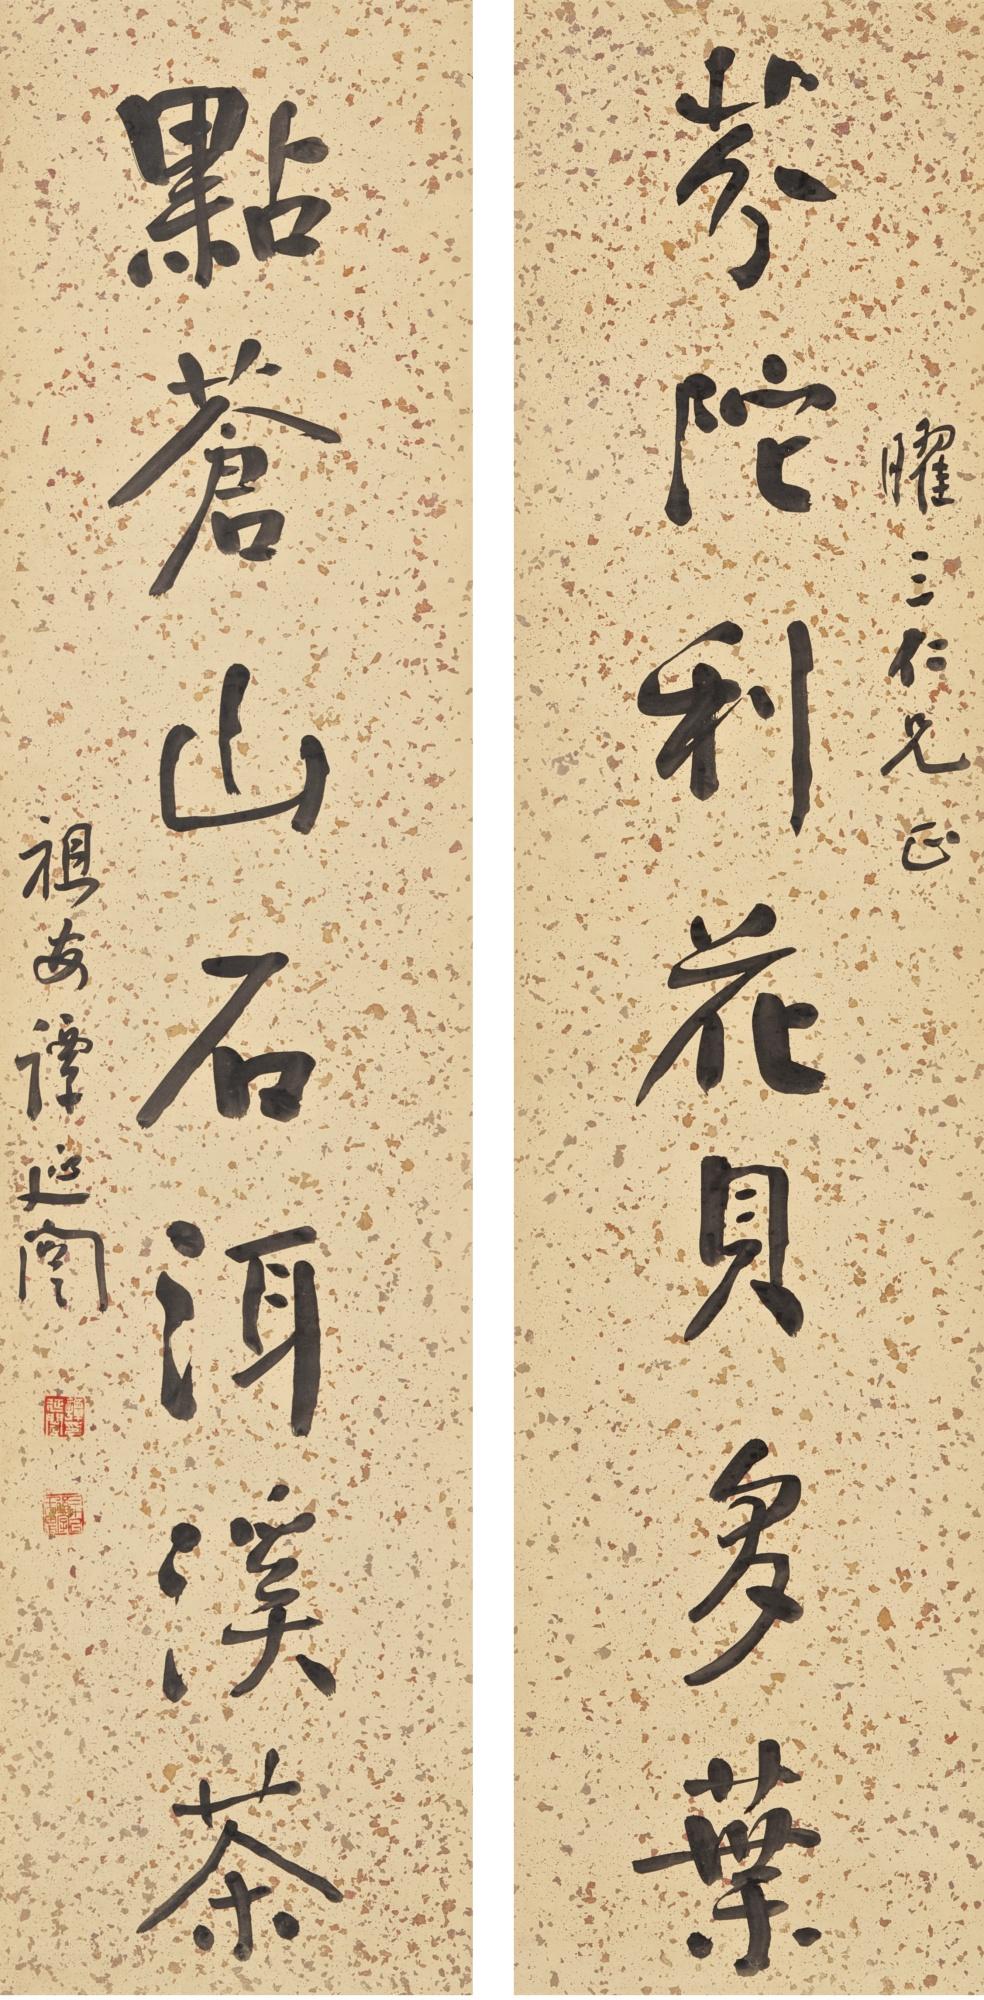 芬陀利花貝多葉
曜三仁兄正
點蒼山石洱溪茶
祖安譚延闓